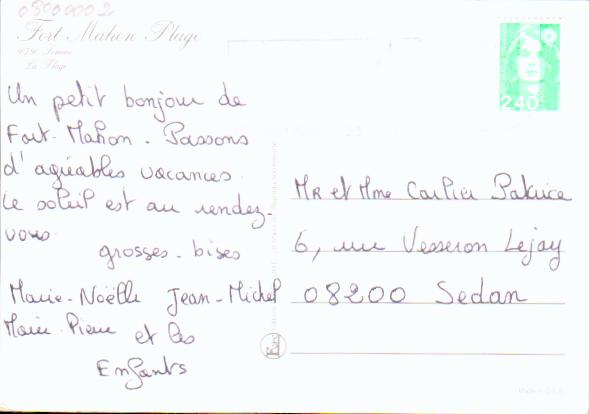 08000002
Fort Mahon Plage
La Plage
2,40
Un petit bonjour de
Fort-Mahon. Passons
d'agréables vacances.
Le soleil est au rendez-
vous.
grosses-bises
Marie-Noëlle Jean-Michel
Marie-Pierre et les
Enfants
MR et Mme Carlier Patrice
6, rue Vesseron Lejay
08200 Sedan